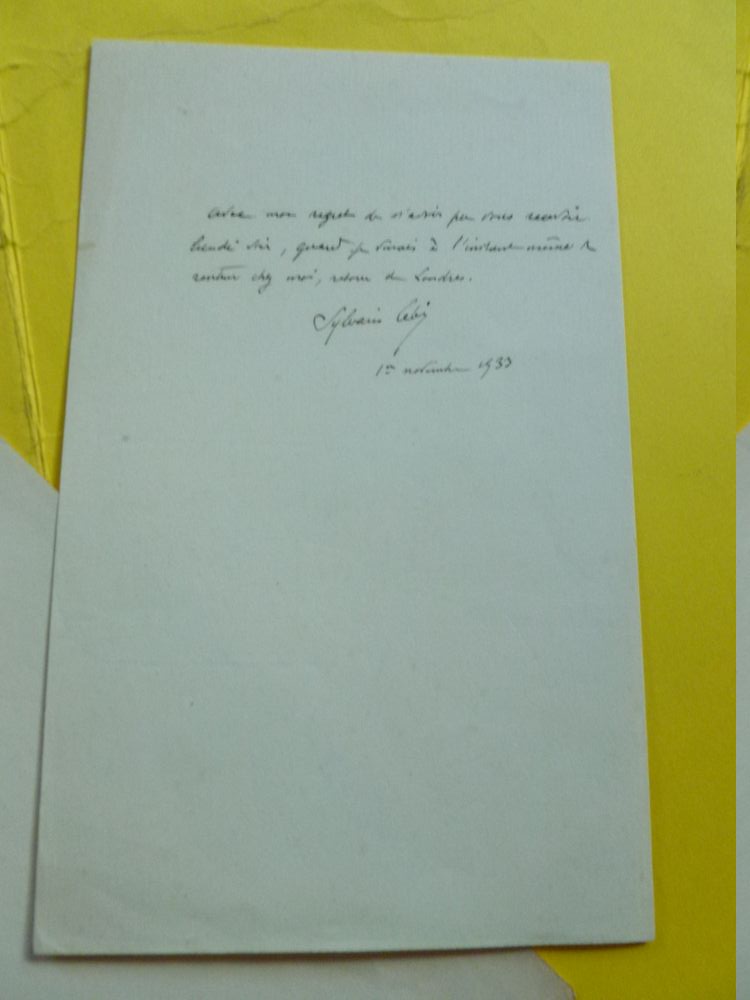 Avec mon regret de n'avoir pu vous recevoir
lundi soir, quand je venais à l'instant même de
rentrer chez moi, retour de Londres.
Sylvain Lévi
1er novembre 1933